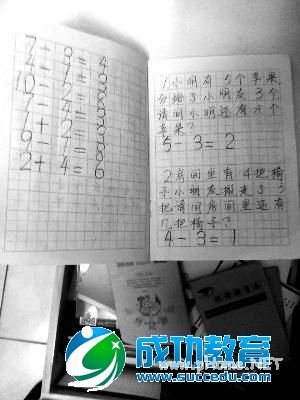 7 - 3 = 4
4 - 1 = 3
10 - 2 = 8
7 - 4 = 3
1 + 2 = 3
9 - 1 = 8
2 + 4 = 6
1小明有5个苹果,
分给了小朋友3个,
请问小明还有几个
苹果?
5 - 3 = 2
2房间里有4把椅
子小朋友搬走了3
把请问房间里还有
几把椅子?
4 - 3 = 1
成功教育
www.succedu.com